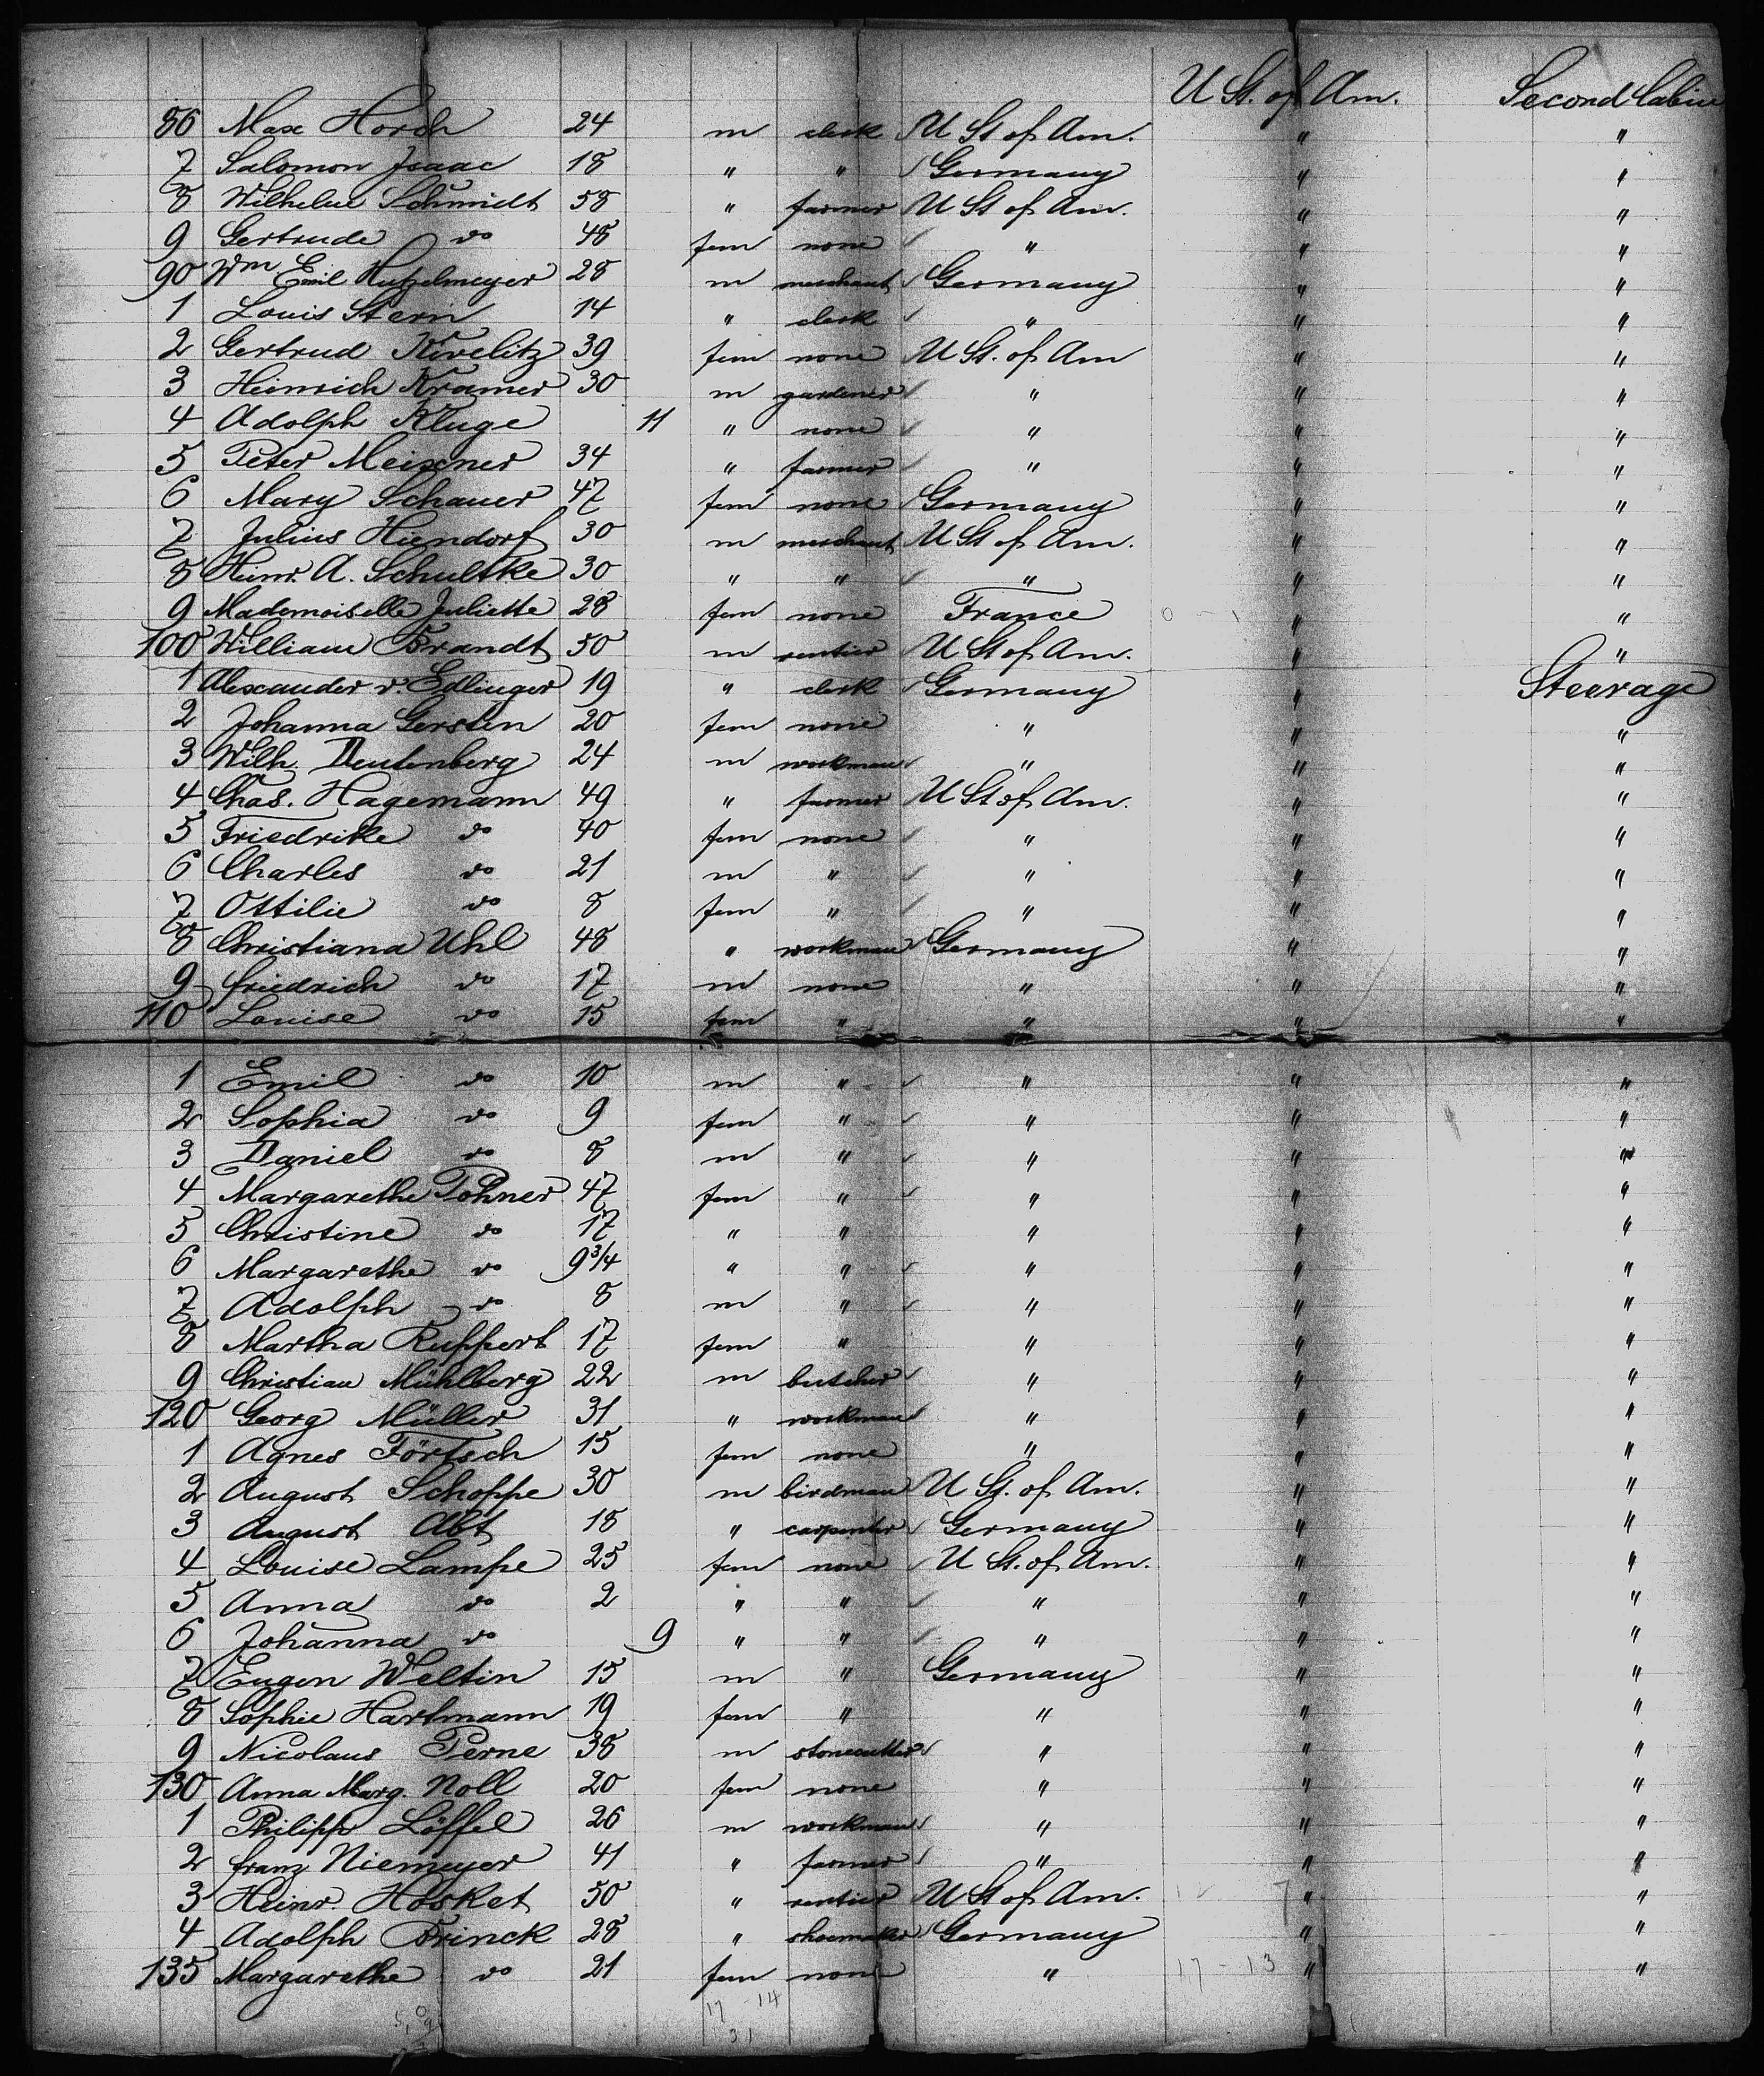 U St. of Am. Second Cabin
86 Max Horch 24 m clerk U St of Am. " "
7 Salomon Isaac 18 " " Germany " "
8 Wilhelm Schmidt 58 " farmer U St of Am. " "
9 Gertrude do 48 fem none " " "
90 Wm Emil Hutzelmeyer 28 m merchant Germany " "
1 Louis Stern 14 " clerk " " "
2 Gertrud Kirelitz 39 fem none U St. of Am " "
3 Heinrich Kramer 30 m gardener " " "
4 Adolph Kluge 11 " none " " "
5 Peter Meixner 34 " farmer " " "
6 Mary Schauer 47 fem none Germany " "
7 Julius Hiendorf 30 m merchant U St of Am. " "
8 Heinr. A. Schultke 30 " " " " "
9 Mademoiselle Juliette 28 fem none France " "
100 William Brandt 50 m rentier U St of Am. " "
1 Alexander v. Edlinger 19 " clerk Germany " Steerage
2 Johanna Gersten 20 fem none " " "
3 Wilh. Deutenberg 24 m workman " " "
4 Chas. Hagemann 49 " farmer U St of Am. " "
5 Friedrike do 40 fem none " " "
6 Charles do 21 m " " " "
7 Ottilie do 8 fem " " " "
8 Christiana Uhl 48 " workman Germany " "
9 Friedrich do 17 m none " " "
110 Louise do 15 fem " " " "
1 Emil do 10 m " " " "
2 Sophia do 9 fem " " " "
3 Daniel do 8 m " " " "
4 Margarethe Pohner 47 fem " " " "
5 Christine do 17 " " " " "
6 Margarethe do 9 3/4 " " " " "
7 Adolph do 8 m " " " "
8 Martha Ruppert 17 fem " " " "
9 Christian Mühlberg 22 m butcher " " "
120 Georg Müller 31 " workman " " "
1 Agnes Förtsch 15 fem none " " "
2 August Schoppe 30 m birdman U St. of Am. " "
3 August Abt 18 " carpenter Germany " "
4 Louise Lampe 25 fem none U St. of Am. " "
5 Anna do 2 " " " " "
6 Johanna do 9 " " " " "
7 Eugen Weltin 15 m " Germany " "
8 Sophie Hartmann 19 fem " " " "
9 Nicolaus Perne 38 m stonecutter " " "
130 Anna Marg. Noll 20 fem none " " "
1 Philipp Löffel 26 m workman " " "
2 Franz Niemeyer 41 " farmer " " "
3 Heinr. Hosket 50 " rentier U St of Am. " "
4 Adolph Brinck 28 " shoemaker Germany " "
135 Margarethe do 21 fem none " 17 - 13 " "
17 - 14
31